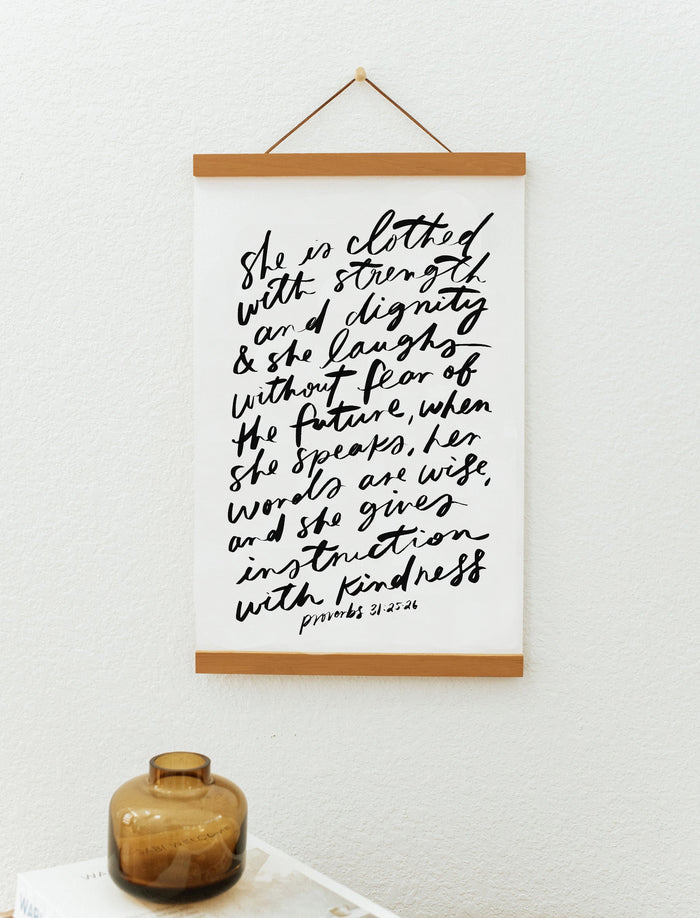 she is clothed
with strength
and dignity
& she laughs
without fear of
the future, when
she speaks, her
words are wise,
and she gives
instruction
with kindness
proverbs 31:25-26